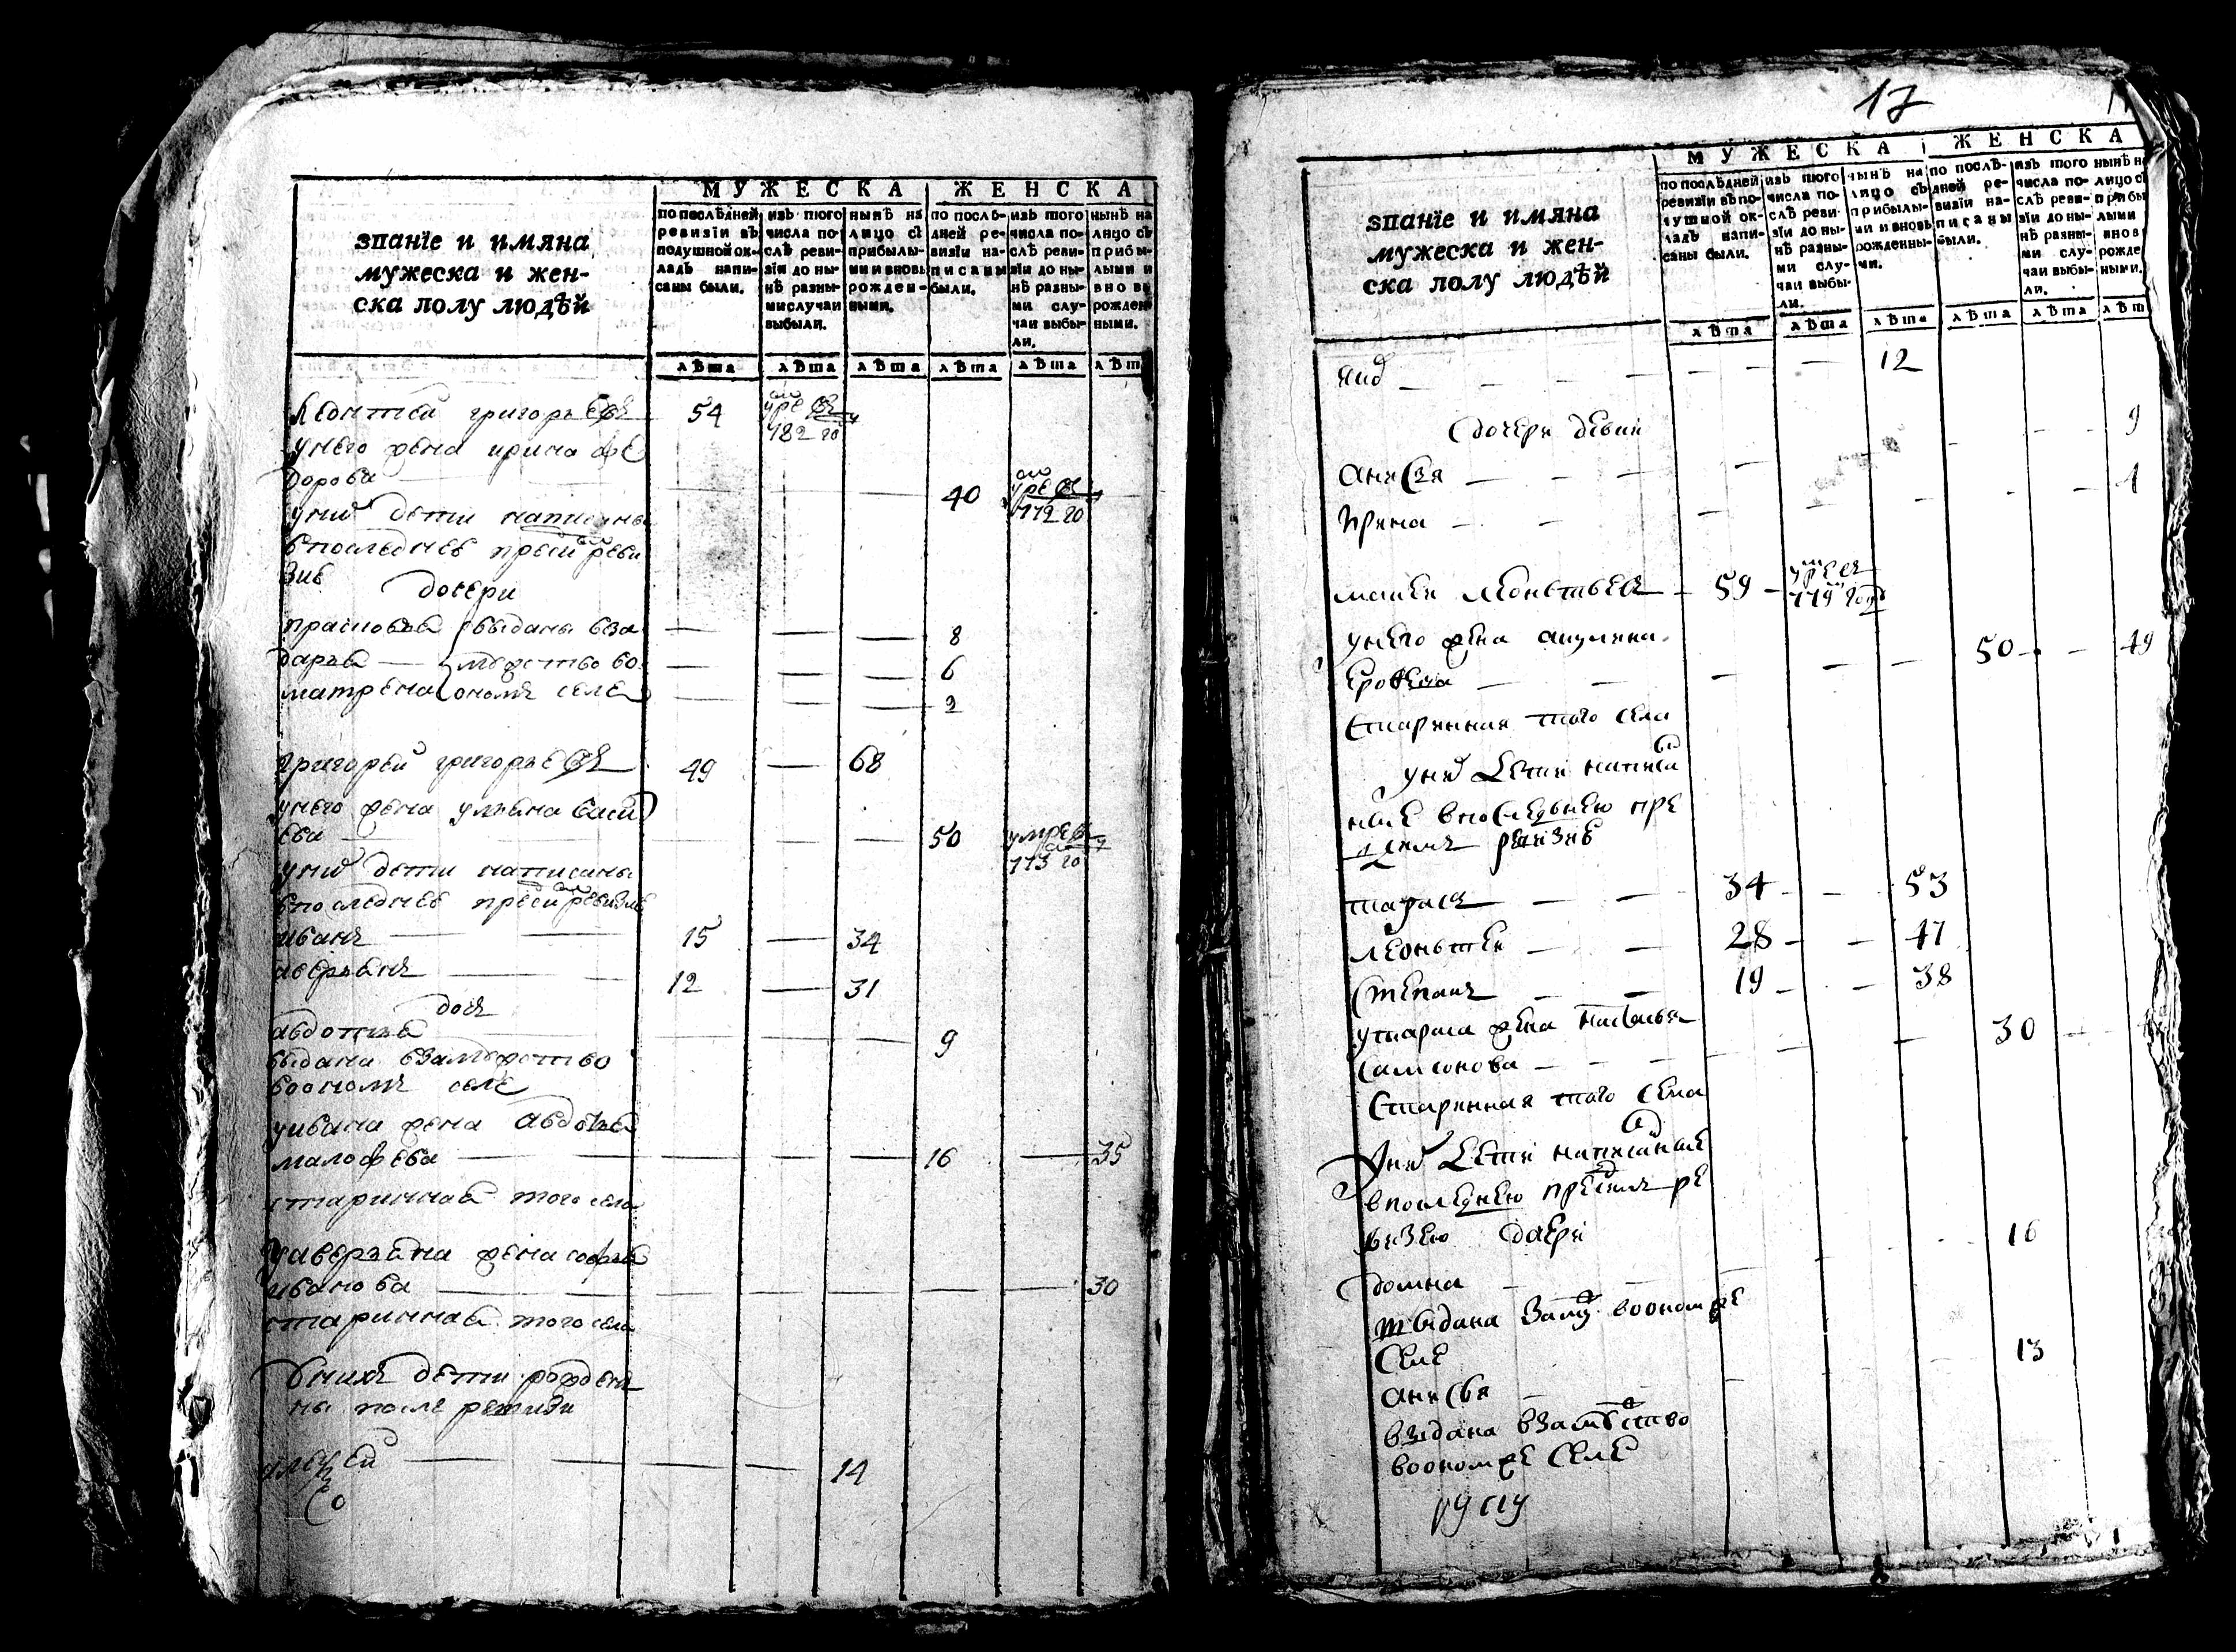 МУЖЕСКА ЖЕНСКА
званїе и имяна
мужеска и жен-
ска полу людѣй
по послѣдней
ревизїи въ
подушной ок-
ладъ напи-
саны были.
изъ того
числа по-
слѣ реви-
зїи до ны-
нѣ разны-
ми случаи
выбыли.
нынѣ на
лицо съ
прибылы-
ми и вновь
рожден-
ными.
по послѣ-
дней ре-
визїи на-
писаны
были.
изъ того
числа по-
слѣ реви-
зїи до ны-
нѣ разны-
ми слу-
чаи выбы-
ли.
нынѣ на
лицо съ
прибы-
лыми и
вновь
рожден-
ными.
лѣта лѣта лѣта лѣта лѣта лѣт
леонтей григорьевъ 54
782 го
унего жена ирина фе
дорова 40
772 го
уних дети написаны
впоследнеѣ пред реви
зиѣ
дочери
прасковья выданы вза 8
дарья мѣжство во 6
матрена ономъ селе 3
григорей григорьевъ 49 68
унего жена ульяна васил
ева 50 умре
773 го
уних дети написаны
впоследнеѣ пред ревизиѣ
иванъ 15 34
аверьянъ 12 31
дочь
авдотья 9
выдана взамѣжство
воономъ селе
уивана жена авдотья
малофѣева 16 35
старинная того села
уаверьяна жена софья
иванова 30
старинная того села
уних дети рожден
ны после ревизи
алексей 14
17
МУЖЕСКА ЖЕНСКА
званїе и имяна
мужеска и жен-
ска полу людѣй
по послѣдней
ревизїи въ по-
душной ок-
ладъ напи-
саны были.
изъ того
числа по-
слѣ реви-
зїи до ны-
нѣ разны-
ми слу-
чаи выбы-
ли.
нынѣ на
лицо съ
прибылы-
ми и вновь
рожденны-
ми.
по послѣ-
дней ре-
визїи на-
писаны
были.
изъ того
числа по-
слѣ реви-
зїи до ны-
нѣ разны-
ми слу-
чаи выбы-
ли.
нынѣ н
лицо съ
прибы
лыми
внов
рожде
ными.
лѣта лѣта лѣта лѣта лѣта лѣт
12
дочери девки
9
анисья
1
ирина
леоньтьевъ 59 умре
779 году
унего жена акулина
50 49
старинная того села
уних дети написа
ные впоследьнею пре
ревизиѣ
тарасъ 34 53
леоньтей 28 47
степанъ 19 38
утараса жена наталья
30
самсонова
старинная того села
уних дети написаные
впоследнею пред ре
визею дочери
16
домна
выдана замуж воономже
селе
13
анисья
выдана взамѣжство
воономже селе